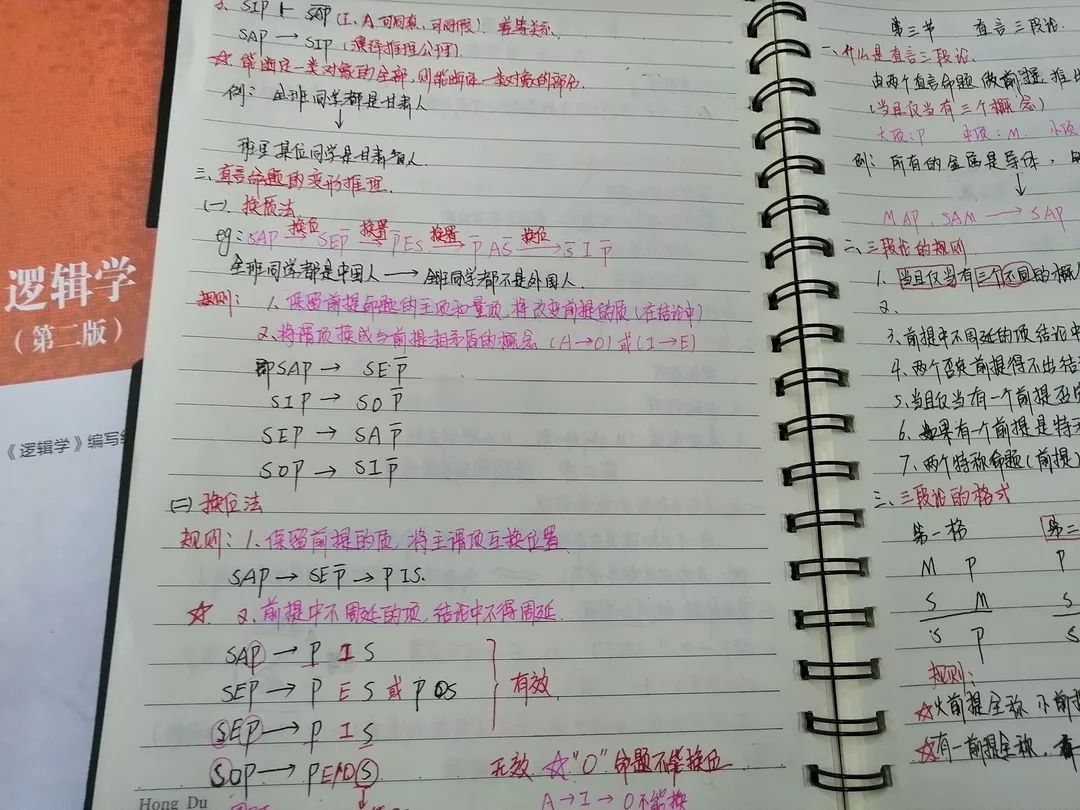 逻辑学
（第二版）
《逻辑学》编写
SIP ⊢ SAP（I、A 可同真，可同假）. 差等关系.
SAP → SIP（演绎推理公理）.
☆ 能断定一类对象的全部，则能断定一类对象的部分.
例：全班同学都是甘肃人
↓
班里某位同学是甘肃省人.
三、直言命题的变形推理.
(一). 换质法
eg: SAP 换位→ SEP̅ 换置→ P̅ES 换置→ P̅AS̅ 换位→ S̅IP̅
全班同学都是中国人 → 全班同学都不是外国人.
规则： 1. 保留前提命题的主项和量项，将改变前提的质（在结论中）
2. 将谓项换成与前提相矛盾的概念（A→O）或（I→E）
即SAP → SEP̅
SIP → SOP̅
SEP → SAP̅
SOP → SIP̅
(二) 换位法
规则：1. 保留前提的质，将主谓项互换位置
SAP → SEP̅ → PIS.
☆ 2. 前提中不周延的项，结论中不得周延.
SAP → P I S
SEP → P E S 或 POS
有效
SEP → P I S
SOP → PEAOS
无效 ☆“O”命题不能换位
A→I→O不能换
Hong Du
第三节 直言三段论.
一、什么是直言三段论.
由两个直言命题做前提，推
（当且仅当有三个概念）
大项：P 中项：M. 小项
例：所有的金属是导体，
↓
MAP, SAM → SAP
二、三段论的规则
1. 当且仅当有三个不同的概
2.
3. 前提中不周延的项结论中
4. 两个否定前提得不出结
5. 当且仅当有一个前提否
6. 如果有一个前提是特
7. 两个特称命题（前提）
三、三段论的格式
第一格 第二
M P P
S M S
S P S
规则：
☆大前提全称 小前提
☆有一前提全称，